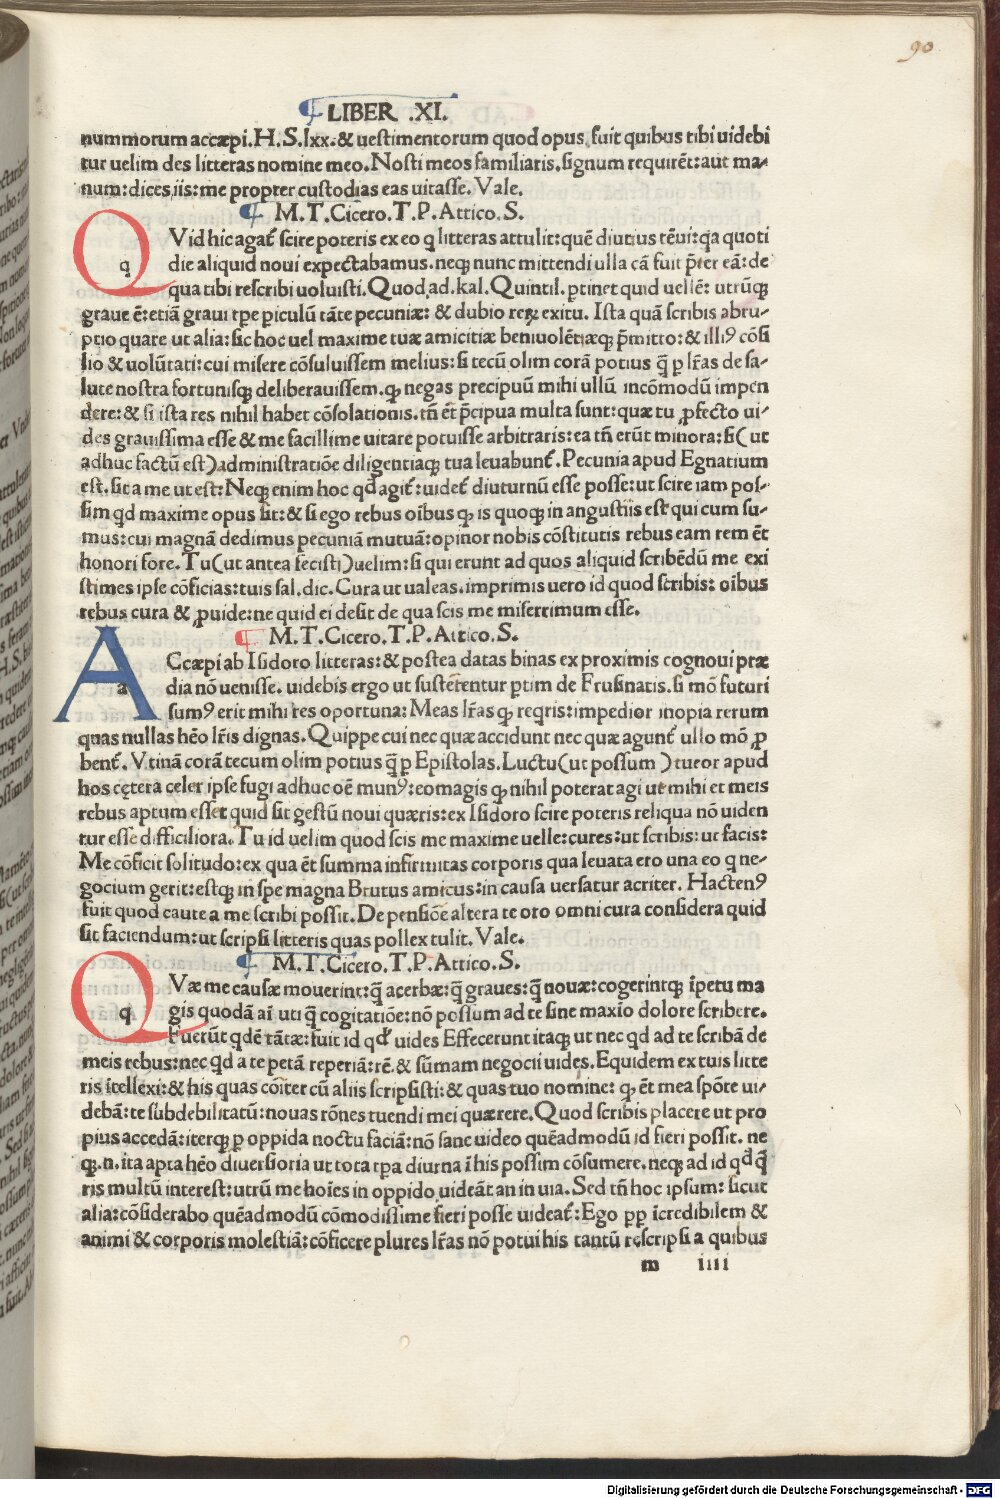 90
LIBER .XI.
nummorum accæpi.H.S.lxx.& uestimentorum quod opus fuit quibus tibi uidebi
tur uelim des litteras nomine meo.Nosti meos familiaris.signum requirẽt:aut ma-
num:dices,iis:me propter custodias eas uitasse.Vale.
M.T.Cicero.T.P.Attico.S.
QVid hic agat᷑ scire poteris ex eo q litteras attulit:quẽ diutius tẽui:qa quoti
die aliquid noui expectabamus.neq; nunc mittendi ulla cã fuit p̃ter eã:de
qua tibi rescribi uoluisti.Quod,ad.kal.Quintil.ꝑtinet quid uellẽ: utrũq;
graue ẽ:etiã graui tꝑe ꝑiculũ tãte pecuniæ: & dubio reꝝ exitu. Ista quã scribis abru-
ptio quare ut alia:sic hoc uel maxime tuæ amicitiæ beniuolẽtiæq; ꝑmitto:& illiꝰ cõsi
lio & uolũtati:cui misere cõsuluissem melius:si tecũ olim corã potius q̃ ꝑ lr̃as de sa-
lute nostra fortunisq; deliberauissem.ꝙ negas precipuũ mihi ullũ incõmodũ impen
dere:& si ista res nihil habet cõsolationis.tñ ẽt p̃cipua multa sunt:quæ tu ꝓfecto ui-
des grauissima esse & me facillime uitare potuisse arbitraris:ea tñ erũt minora:si(ut
adhuc factũ est)administratiõe diligentiaq; tua leuabunt᷑.Pecunia apud Egnatium
est.sit a me ut est:Neq; enim hoc qd agit᷑:uidet᷑ diuturnũ esse posse:ut scire iam pos-
sim qd maxime opus sit:& si ego rebus oĩbus ꝙ is quoq; in angustiis est qui cum su-
mus:cui magnã dedimus pecuniã mutuã:opinor nobis cõstitutis rebus eam rem ẽt
honori fore.Tu(ut antea fecisti)uelim:si qui erunt ad quos aliquid scribẽdũ me exi
stimes ipse cõficias:tuis sal.dic.Cura ut ualeas.imprimis uero id quod scribis:oĩbus
rebus cura & ꝓuide:ne quid ei desit de qua scis me miserrimum esse.
M.T.Cicero.T.P.Attico.S.
ACcæpi ab Isidoro litteras:& postea datas binas ex proximis cognoui præ
dia nõ uenisse. uidebis ergo ut sustẽtentur ꝑtim de Frusinatis.si mõ futuri
sumꝰ erit mihi res oportuna:Meas lr̃as ꝙ reqris:impedior inopia rerum
quas nullas hẽo lr̃is dignas.Quippe cui nec quæ accidunt nec quæ agunt᷑ ullo mõ ꝓ
bent᷑.Vtinã corã tecum olim potius q̃ ꝑ Epistolas.Luctu(ut possum )tueor apud
hos cętera celer ipse fugi adhuc oẽ munꝰ:eo magis ꝙ nihil poterat agi ut mihi et meis
rebus aptum esset quid sit gestũ noui quæris:ex Isidoro scire poteris reliqua nõ uiden
tur esse difficiliora.Tu id uelim quod scis me maxime uelle:cures:ut scribis:ut facis:
Me cõficit solitudo:ex qua ẽt summa infirmitas corporis qua leuata ero una eo q ne-
gocium gerit:estq; in spe magna Brutus amicus:in causa uersatur acriter. Hactenꝰ
fuit quod caute a me scribi possit.De pensiõe altera te oro omni cura considera quid
sit faciendum:ut scripsi litteris quas pollex tulit.Vale.
M.T.Cicero.T.P.Attico.S.
QVæ me causæ mouerint:q̃ acerbæ:q̃ graues:q̃ nouæ:cogerintq; ĩpetu ma
gis quodã aĩ uti q̃ cogitatiõe:nõ possum ad te sine maxĩo dolore scribere.
Fuerũt qdẽ tãtæ:fuit id qd uides Effecerunt itaq; ut nec qd ad te scribã de
meis rebus:nec qd a te petã reperiã:rẽ.& sũmam negocii uides.Equidem ex tuis litte
ris ĩtellexi:& his quas cõiter cũ aliis scripsisti:& quas tuo nomine: ꝙ ẽt mea spõte ui-
debã:te subdebilitatũ:nouas rõnes tuendi mei quærere.Quod scribis placere ut pro
pius accedã:iterq; ꝑ oppida noctu faciã:nõ sane uideo quẽadmodũ id fieri possit. ne
q;.n.ita apta hẽo diuersoria ut tota tꝑa diurna ĩ his possim cõsumere.neq; ad id qd q̃
ris multũ interest:utrũ me hoĩes in oppido uideãt an in uia.Sed tñ hoc ipsum: sicut
alia:cõsiderabo quẽadmodũ cõmodissime fieri posse uideat᷑:Ego pp ĩcredibilem &
animi & corporis molestiã:cõficere plures lr̃as nõ potui his tantũ rescripsi a quibus
m iiii
Digitalisierung gefördert durch die Deutsche Forschungsgemeinschaft - DFG